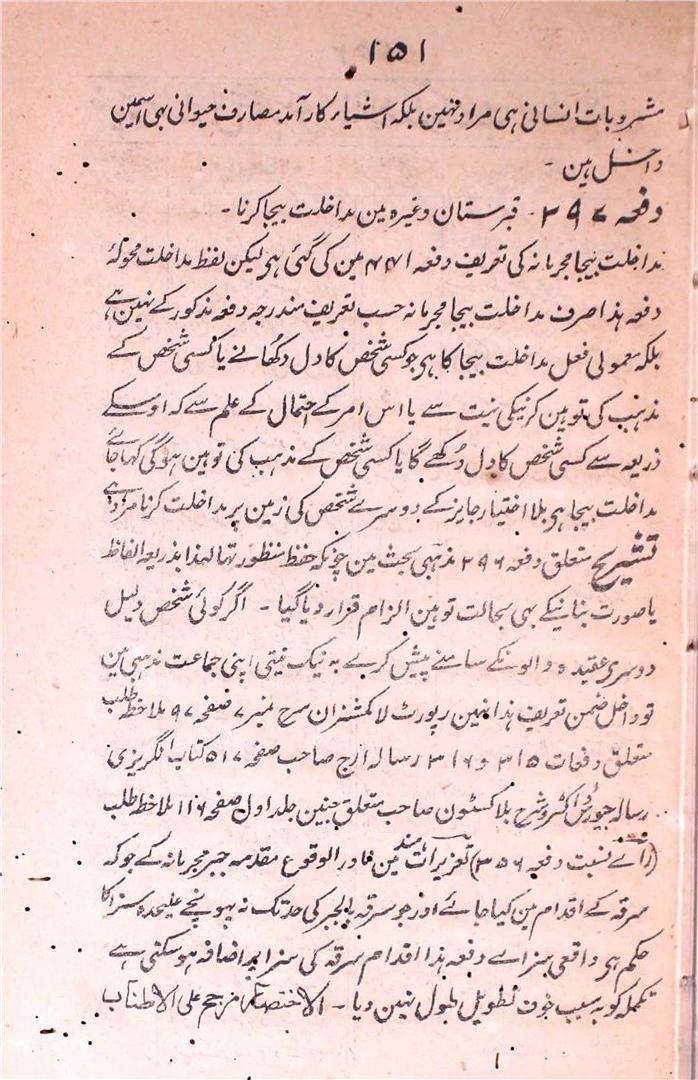 ۱۵۱
مشروبات انسانی ہی مراد نہین بلکہ اشیاء کار آمد مصارف حیوانی بہی اسمین
داخل ہین -
دفعہ ۲۹۷ - قبرستان وغیرہ مین مداخلت بیجا کرنا -
مداخلت بیجا مجرمانہ کی تعریف دفعہ ۴۴۱ مین کی گئی ہی لیکن لفظ مداخلت محولۂ
دفعہ ہذا صرف مداخلت بیجا مجرمانہ حسب تعریف مندرجہ دفعہ مذکور کے نہین ہے
بلکہ معمولی فعل مداخلت بیجا کا ہی جو کسی شخص کا دل دکھانے یا کسی شخص کے
مذہب کی توہین کرنیکی نیت سے یا اس امر کے احتمال کے علم سے کہ اوسکے
ذریعہ سے کسی شخص کا دل دُکھے گا یا کسی شخص کے مذہب کی توہین ہوگی کہا جائے
مداخلت بیجا ہی بلا اختیار جایز کے دوسرے شخص کی زمین پر مداخلت کرنا مراد ہے
تشریح متعلق دفعہ ۲۹۶ مذہبی بحث مین چونکہ حفظ منظور تہا لہذا بذریعہ الفاظ
یا صورت بنانیکے بہی بحالت توہین الزام قرار دیا گیا - اگر کوئی شخص دلیل
دوسری عقیدہ والونکے سامنے پیش کرے بہ نیک نیتی اپنی جماعت مذہبی مین
تو داخل ضمن تعریف ہذا نہین رپورٹ لا کمشنران شرح نمبر ۷ صفحہ ۹۷ ملاحظہ طلب
متعلق دفعات ۳۱۵ و ۳۱۶ رسالہ ارچ صاحب صفحہ ۵۱۷ کتاب انگریزی
رسالہ جیورس ڈاکٹر و شرح بلاکسٹون صاحب متعلق جنین جلد اول صفحہ ۱۱۶ ملاحظہ طلب
(رائے نسبت دفعہ ۳۵۶) تعزیرات ہند مین نادر الوقوع مقدمہ جبر مجرمانہ کے جو کہ
سرقہ کے اقدام مین کیا جائے اور جو سرقہ بالجبر کی حد تک نہ پہونچے علیحدہ سزا کا
حکم ہی واقعی سزاے دفعہ ہذا اقدام سرقہ کی سزا پر اضافہ ہوسکتی ہے
تکملہ کو بہ سبب خوف تطویل طول نہین دیا - الاختصار مرجح علی الاطناب